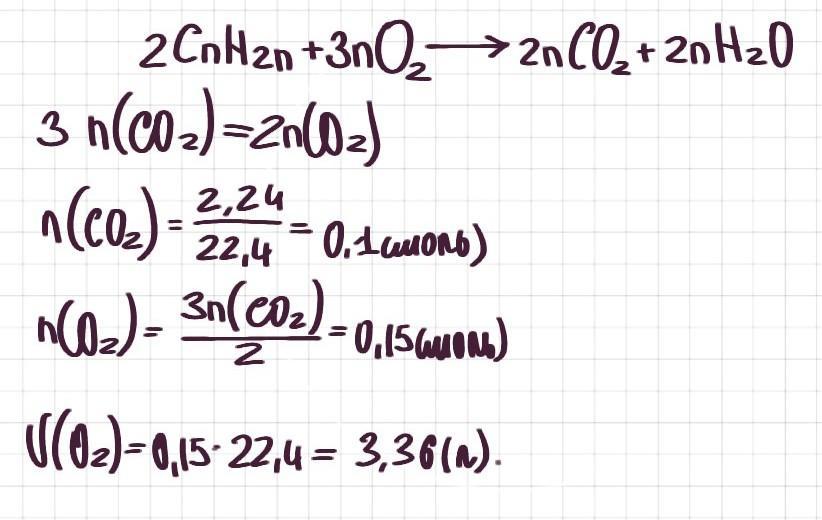 2CnH2n + 3nO2 → 2nCO2 + 2nH2O
3 n(CO2) = 2n(O2)
n(CO2) = 2,24 / 22,4 = 0,1 (моль)
n(O2) = 3n(CO2) / 2 = 0,15 (моль)
V(O2) = 0,15 · 22,4 = 3,36 (л).